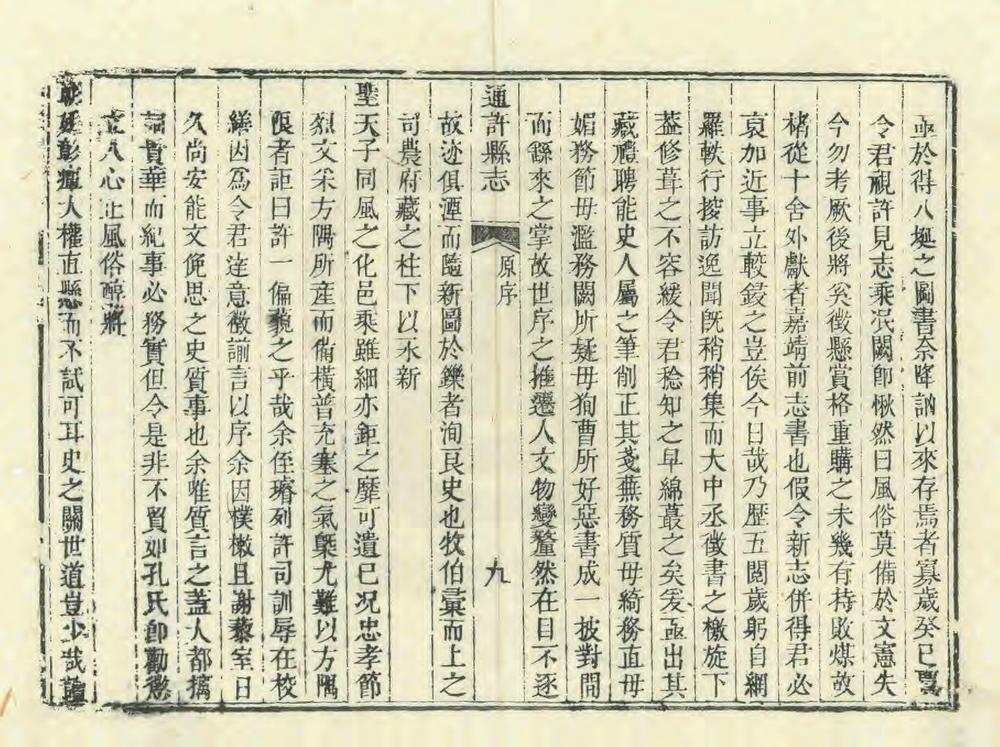 亟於得八埏之圖書奈降訥以來存焉者寡歲癸巳
令君視許見志乘冺闕卽愀然曰風俗莫備於文憲失
今勿考厥後將奚徵懸賞格重購之未幾有持敗煤故
楮從十舍外獻者嘉靖前志書也假令新志併得君必
裒加近事立較鋟之豈俟今日哉乃歷五閱歲躬自網
羅軼行搜訪逸聞旣稍稍集而大中丞徵書之檄旋下
葢修葺之不容緩令君稔知之早綿蕞之矣爰亟出其
藏禮聘能史人屬之筆削正其戔蕪務質毋綺務直毋
媚務節毋濫務闕所疑毋狥曹所好惡書成一披對間
而繇來之掌故世序之推遷人文物變犛然在目不逐
通許縣志 原序 九
故迹俱湮而隨新圖於鑠者洵良史也牧伯彙而上之
司農府藏之柱下以永新
聖天子同風之化邑乘雖細亦鉅之靡可遺已况忠孝節
烈文采方隅所産而備橫普充塞之氣槩尤難以方隅
限者詎曰許一偏藐之乎哉余侄璿列許司訓辱在校
繕因爲令君達意徵諭言以序余因樸樕且謝藜室日
久尚安能文俛思之史質事也余唯質言之葢人都摛
詞貴華而紀事必務實但令是非不貿如孔氏卽勸懲
立人心正風俗醇將
朝廷彰癉大權直懸而不試可耳史之關世道豈少哉